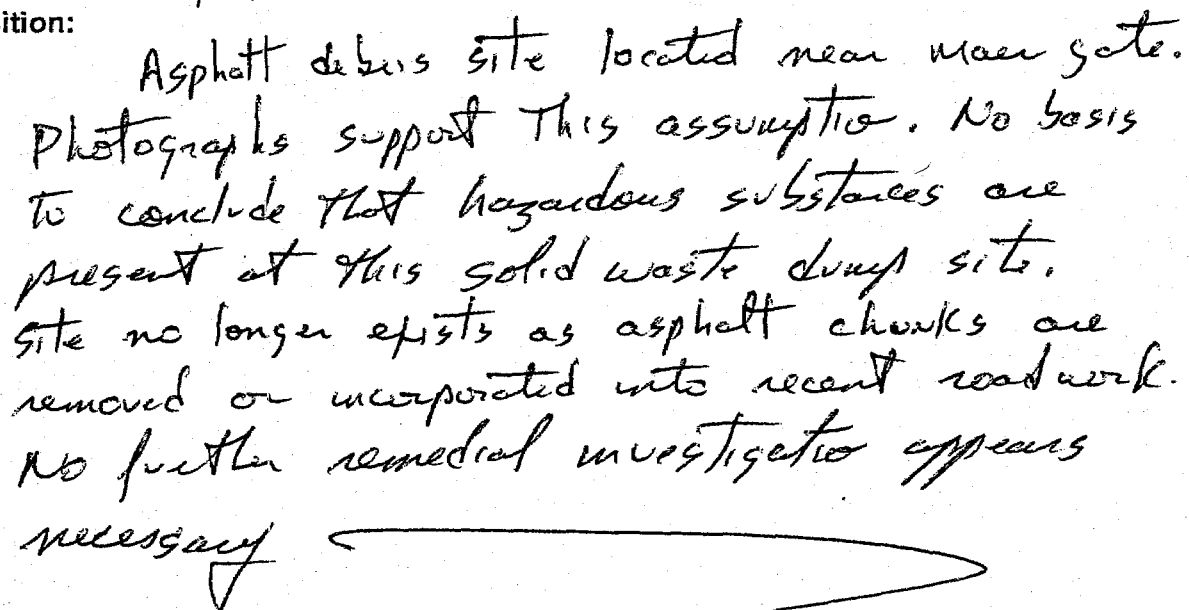 ition:
Asphalt debris site located near main gate.
Photographs support This assumption. No basis
to conclude that hazardous substances are
present at this solid waste dump site.
Site no longer exists as asphalt chunks are
removed or incorporated into recent roadwork.
No further remedial investigation appears
necessary